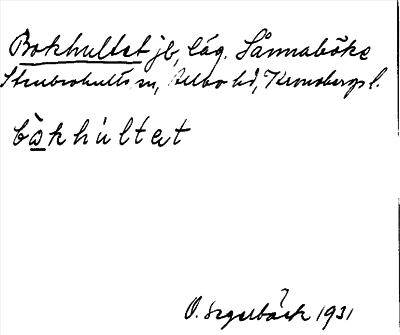 Bokhultet jb, läg. Sånnaböke
Stenbrohults sn, Allbo hd, Kronobergs l.
bòkhúltet
O. Segerbäck 1931